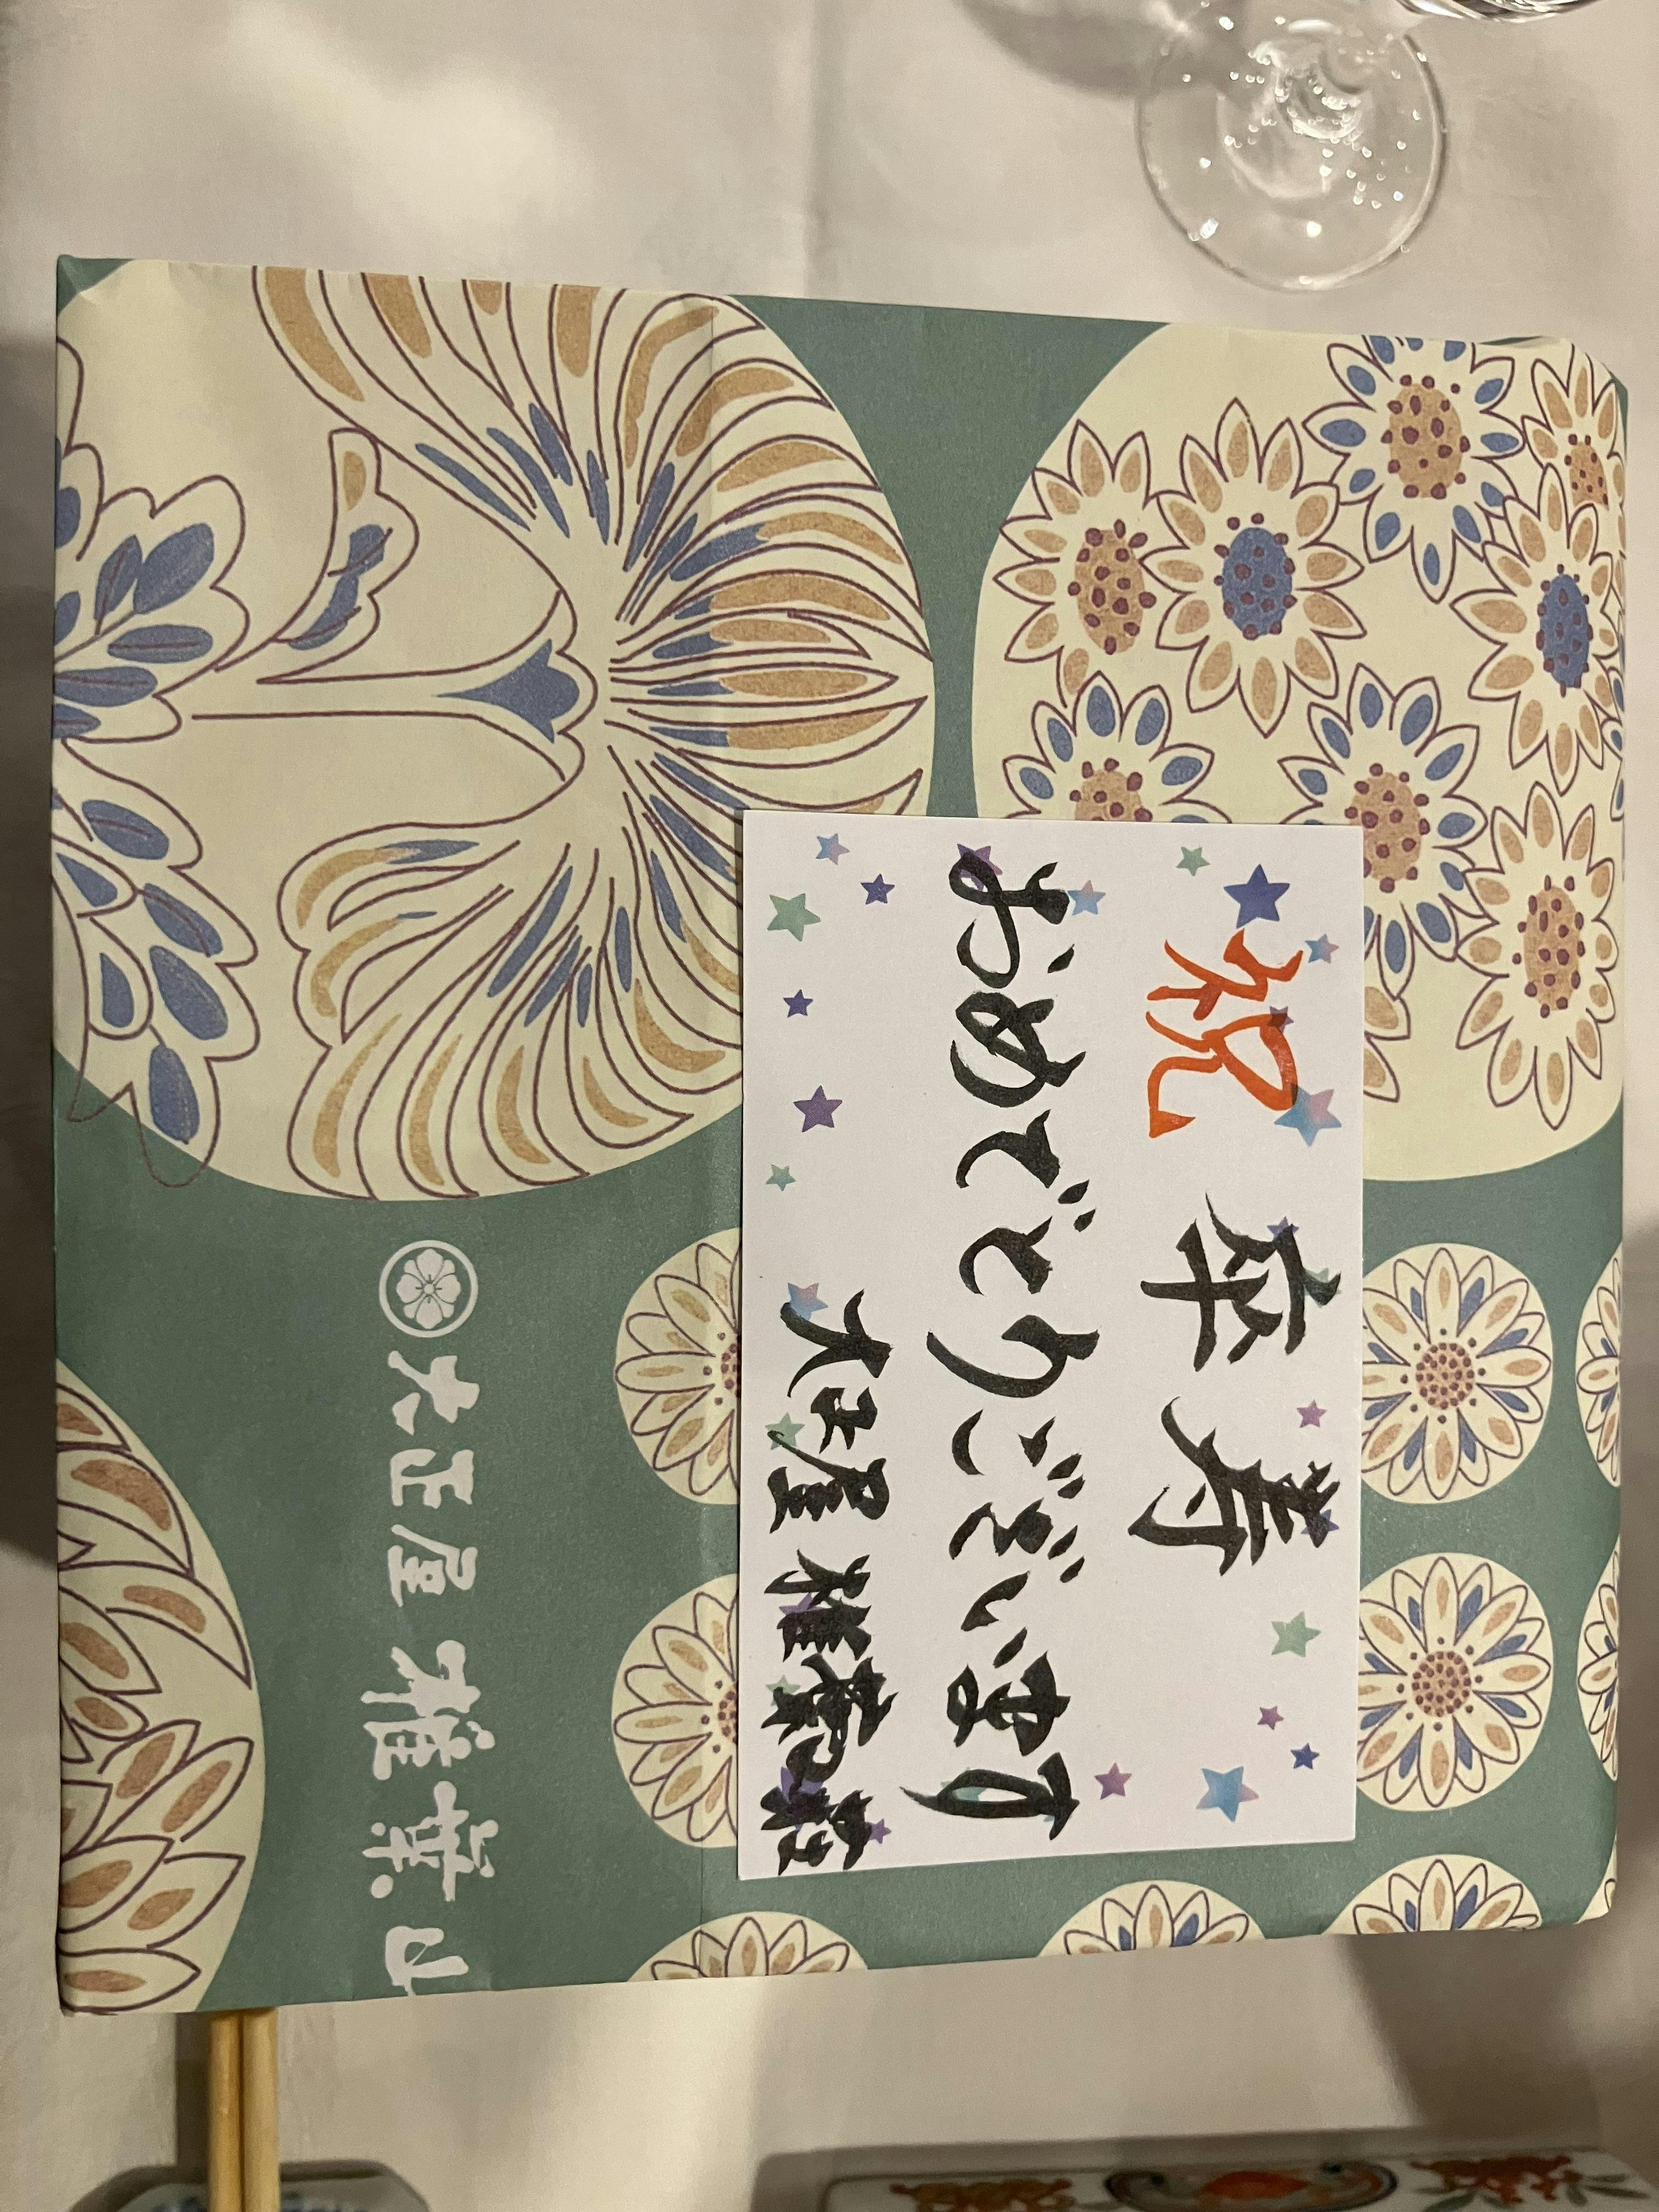 祝 卒寿
おめでとうございます
大正屋 椎葉山荘
大正屋 椎葉山